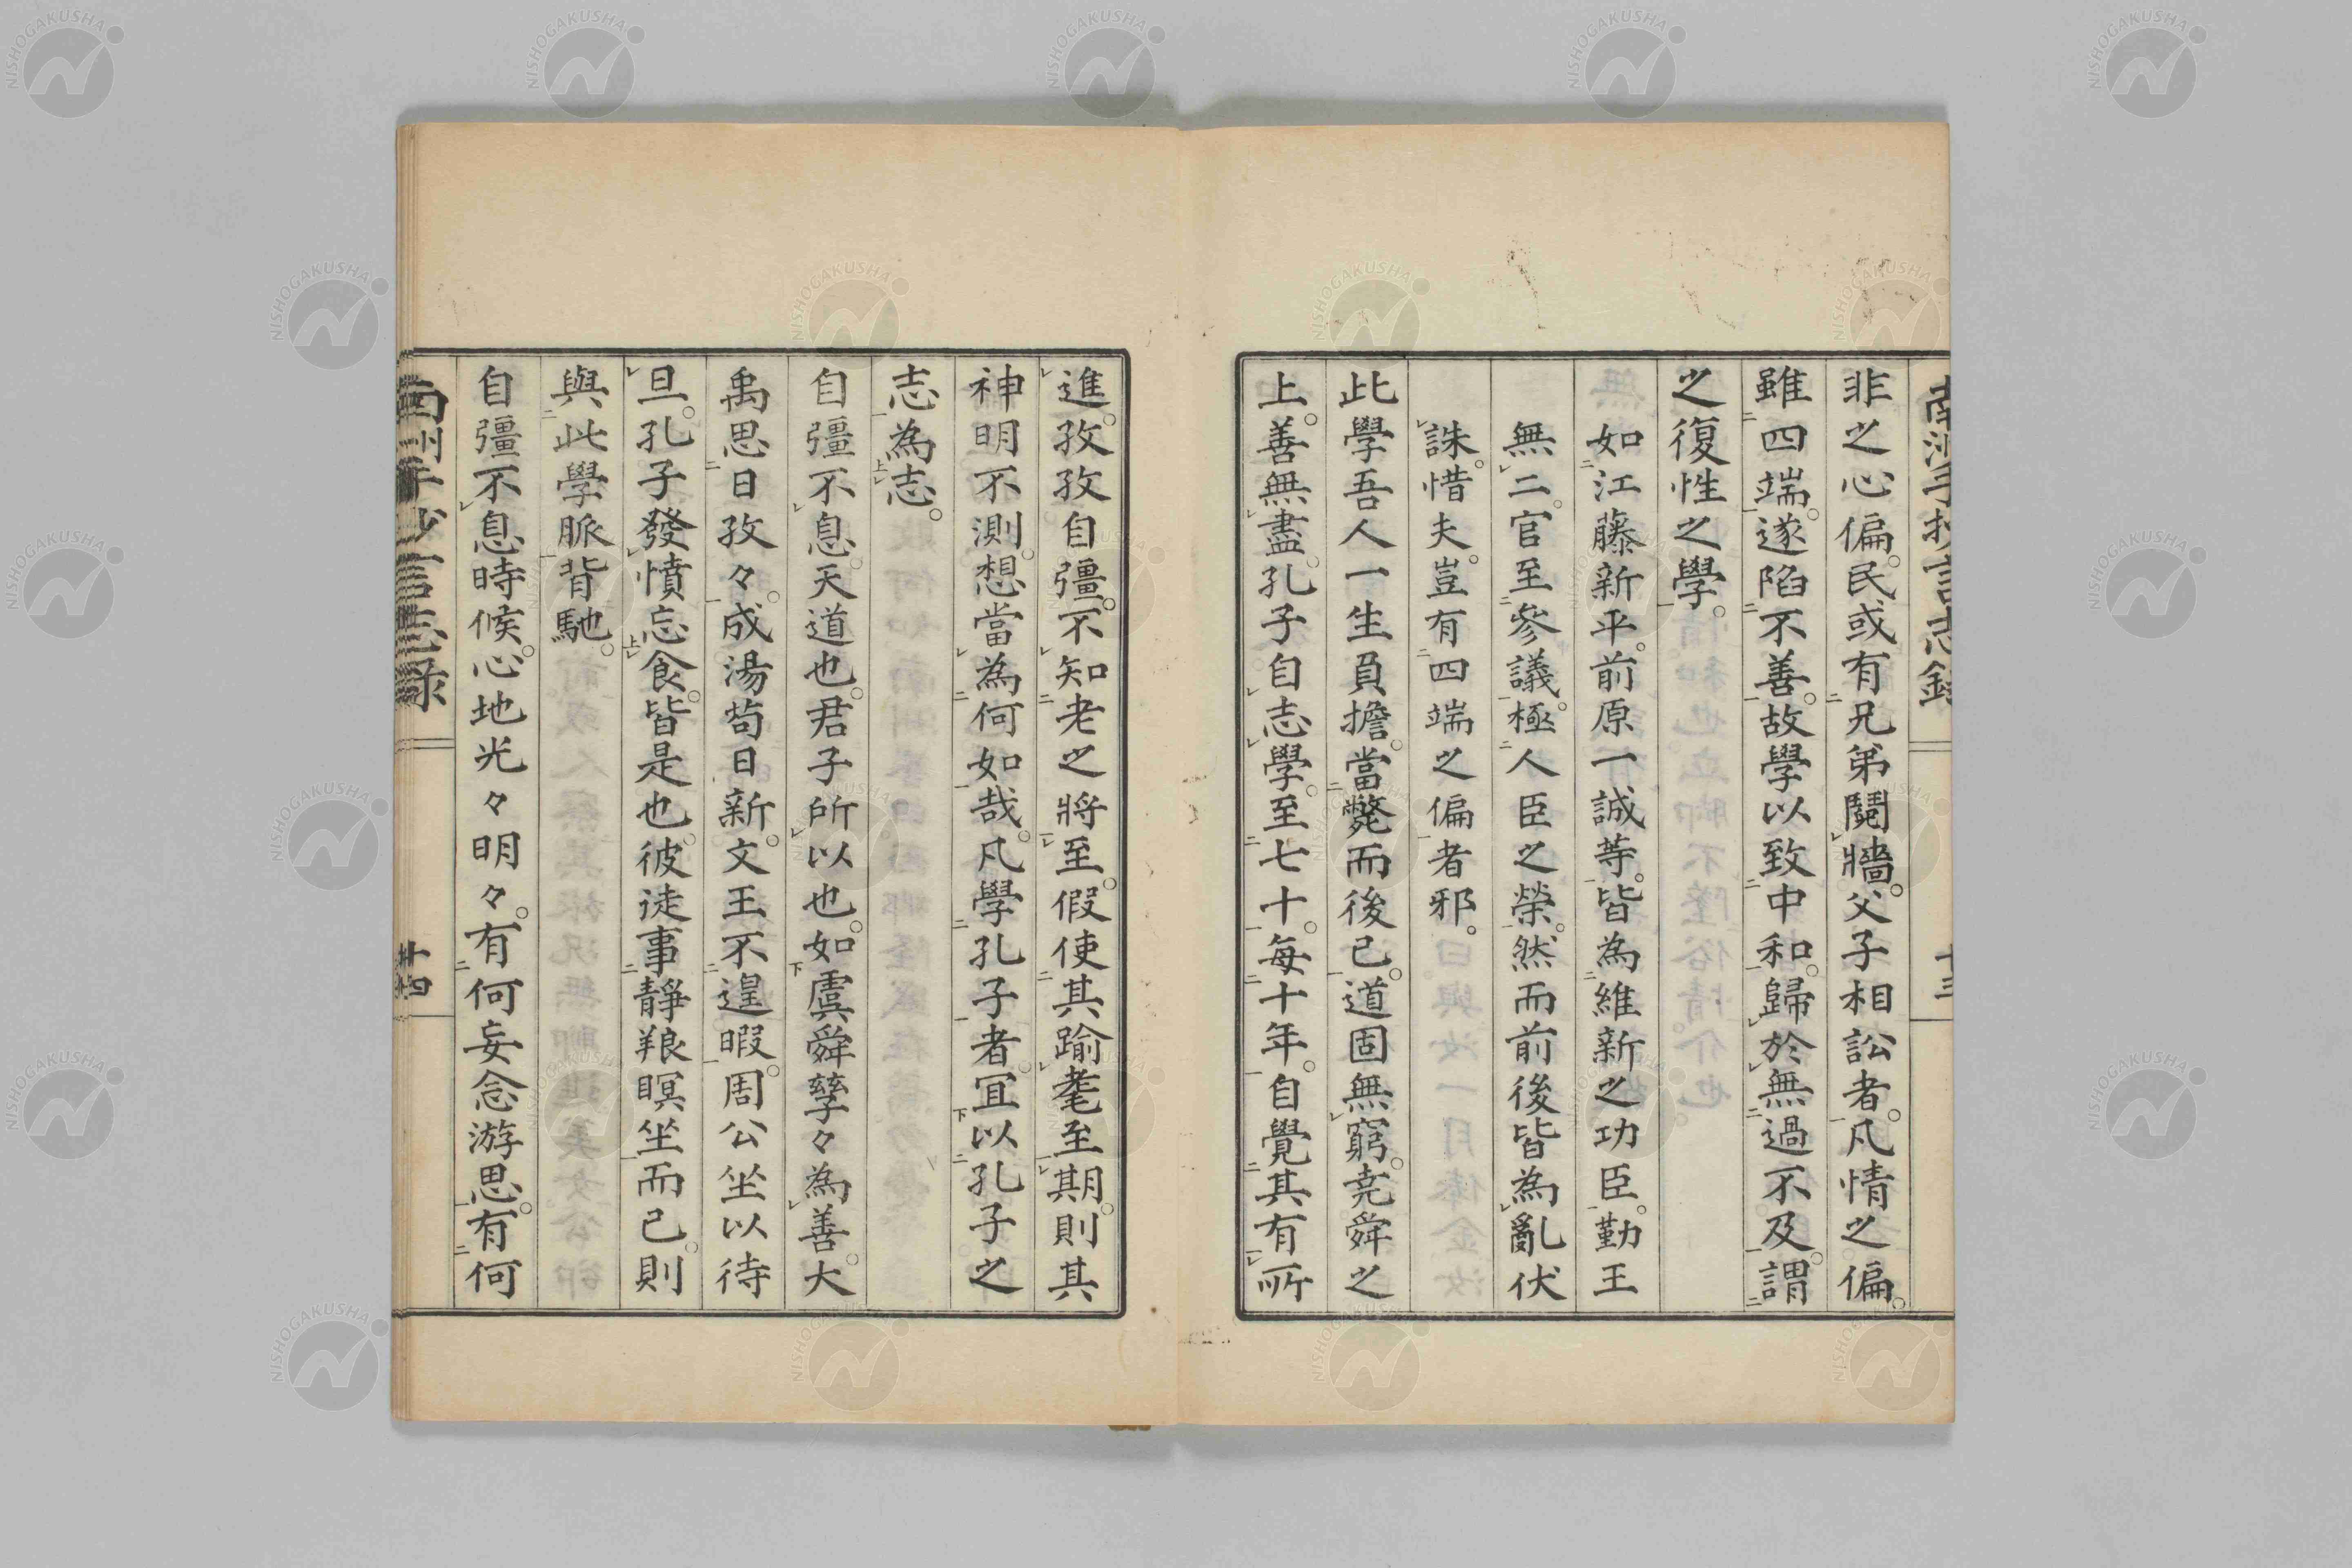 南洲手抄言志錄
十三
非之心偏。民或有兄弟鬩牆。父子相訟者。凡情之偏。
雖四端。遂陷不善。故學以致中和。歸於無過不及。謂
之復性之學。
如江藤新平。前原一誠等。皆為維新之功臣。勤王
無二。官至參議。極人臣之榮。然而前後皆為亂伏
誅。惜夫。豈有四端之偏者邪。
此學吾人一生負擔。當斃而後已。道固無窮。堯舜之
上。善無盡。孔子自志學。至七十。每十年。自覺其有所
進。孜孜自彊。不知老之將至。假使其踰耄至期。則其
神明不測。想當為何如哉。凡學孔子者。宜以孔子之
志為志。
自彊不息。天道也。君子所以也。如虞舜孳々為善。大
禹思日孜々。成湯苟日新。文王不遑暇。周公坐以待
旦。孔子發憤忘食。皆是也。彼徒事靜養瞑坐而已。則
與此學脈背馳。
自彊不息時候。心地光々明々。有何妄念游思。有何
南洲手抄言志録
廿四
NISHOGAKUSHA